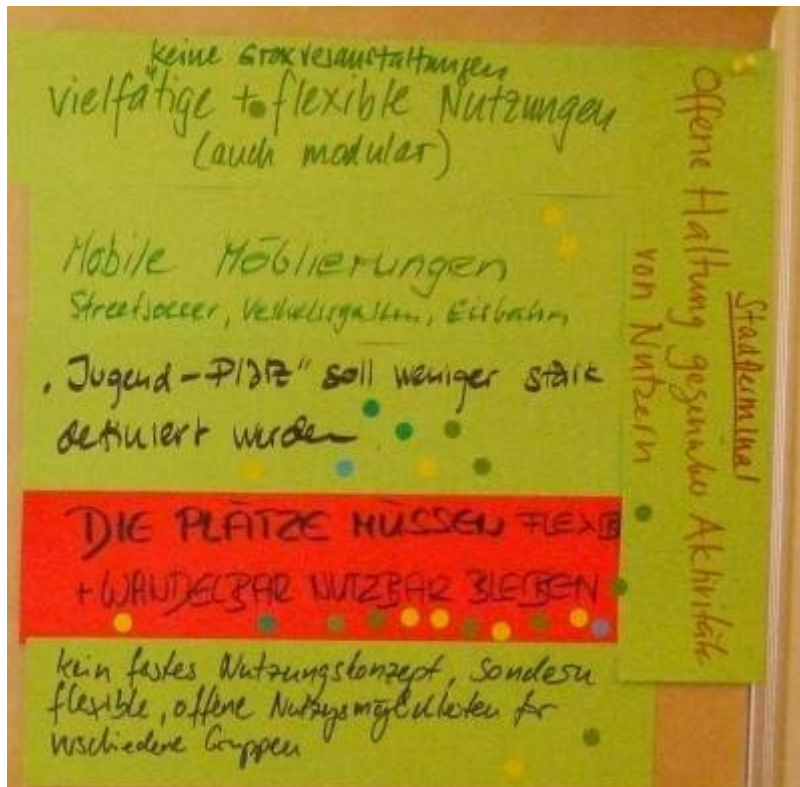 keine Großveranstaltungen
vielfätige + flexible Nutzungen
(auch modular)
Mobile Möblierungen
Streetsoccer, Verkehrsgarten, Eisbahn
"Jugend-Platz" soll weniger stark
definiert werden
DIE PLÄTZE MÜSSEN FLEXIB
+ WANDELBAR NUTZBAR BLEIBEN
kein festes Nutzungskonzept, sondern
flexible, offene Nutzungsmöglichkeiten für
verschiedene Gruppen
Stadtterminal
Offene Haltung gegenüber Aktivitäten
von Nutzern